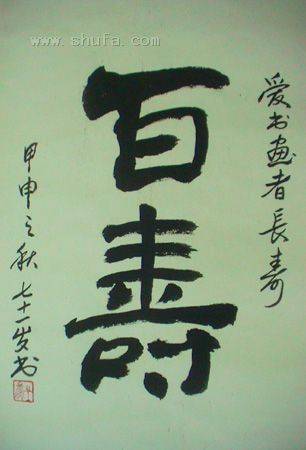 www.shufa.com
爱书画者長寿
百壽
甲申之秋七十一岁书